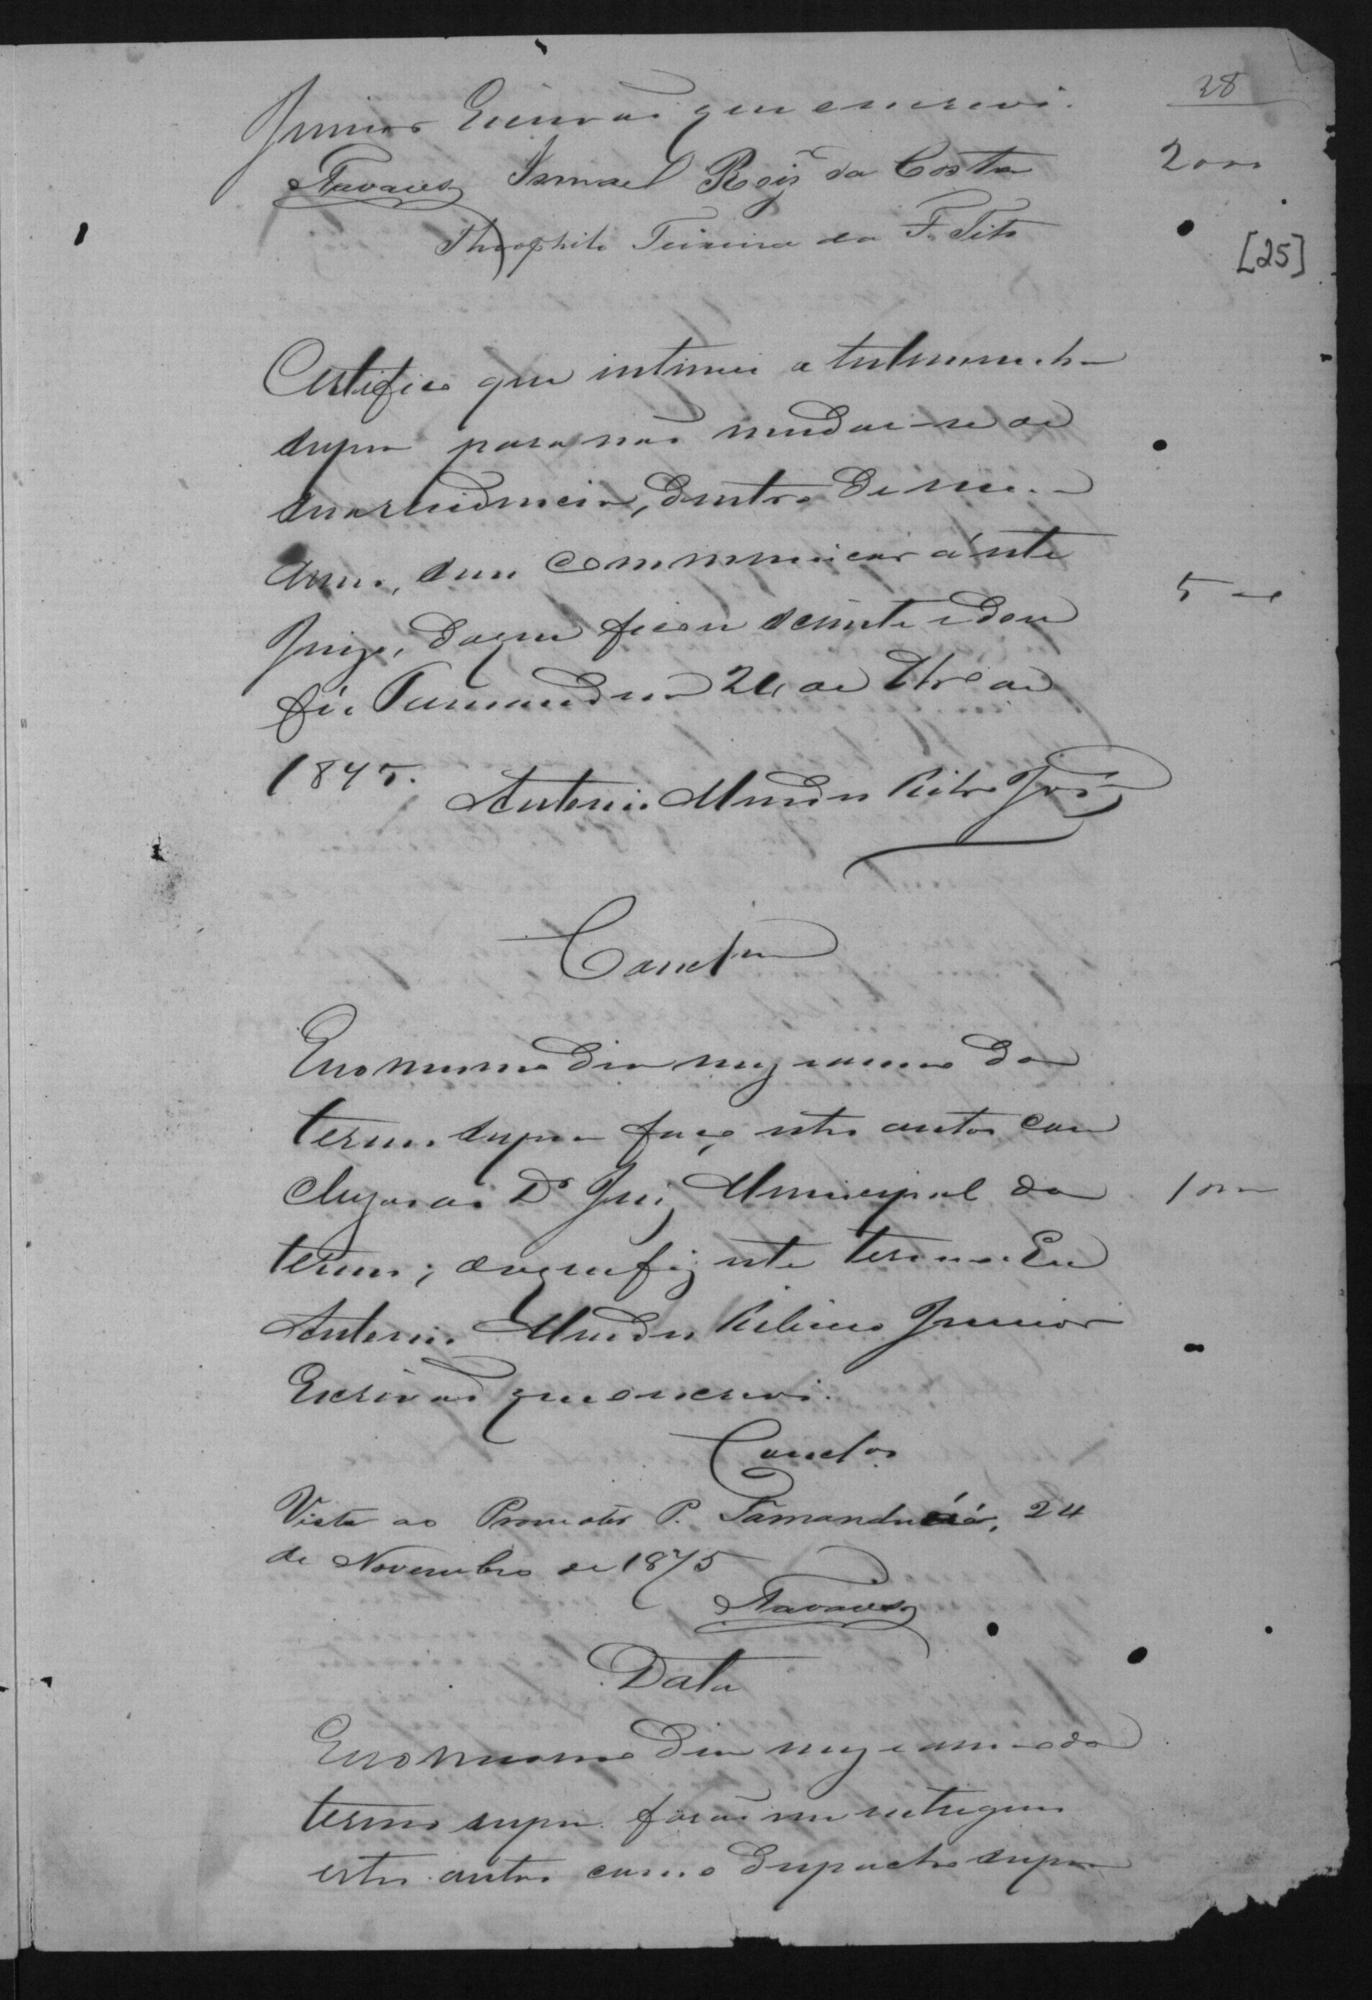 28
Junior Escrivão que escrevi.
Tavares Ismael Roiz da Costa
2000
Theophilo Teixeira da F. Tito
[25]
Certifico que intimei a testemunha
supra para não mudar-se de
sua residencia, dentro de um
anno, sem communicar á este
500
Juizo, do que ficou sciente e dou
fé. Tamanduá 24 de 9bro de
1875. Antonio Mendes Ribro Jor
Conclm
E no mesmo dia mez e anno do
termo supra faço estes autos con
clusos ao Dr Juiz Municipal do
1000
termo; do que fiz este termo. Eu
Antonio Mendes Ribeiro Junior
Escrivão que escrevi.
Conclos
Vista ao Promotor P. Tamanduá, 24
de Novembro de 1875
Tavares
Data
E no mesmo dia mez e anno do
termo supra forão me entregues
estes autos com o despacho supra